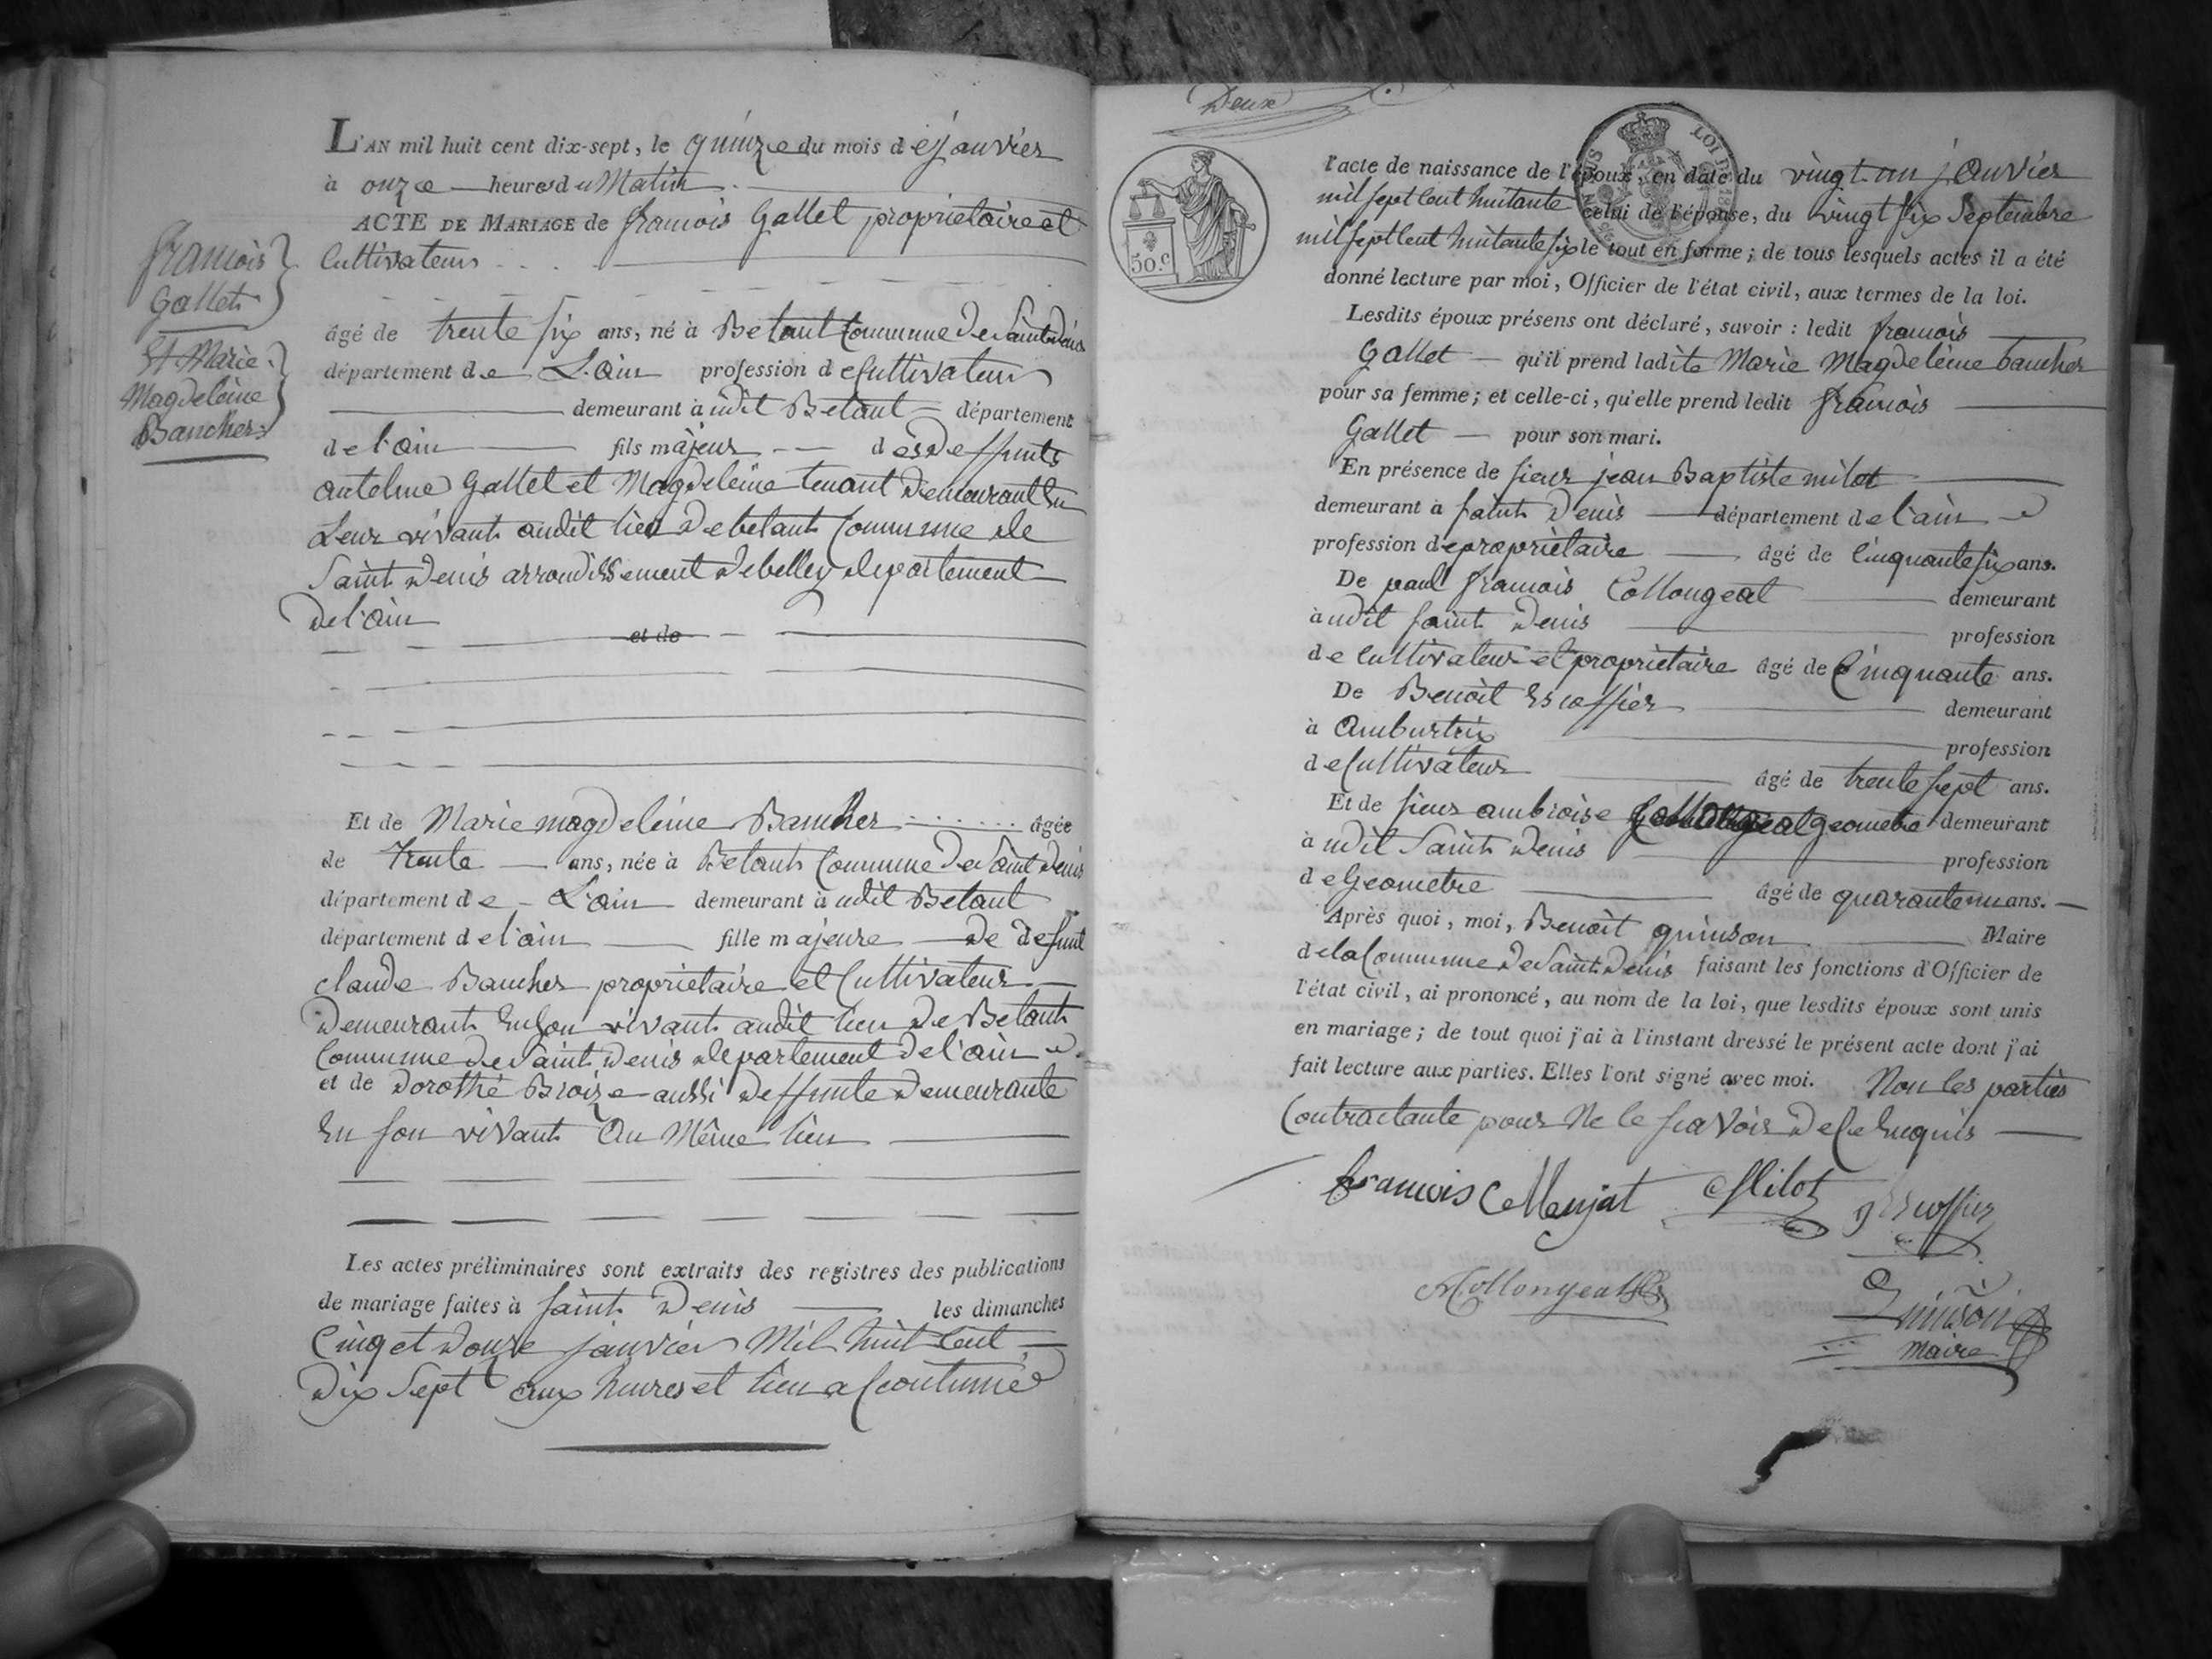 L'AN mil huit cent dix-sept, le quinze du mois de janvier
à onze heures du Matin
ACTE DE MARIAGE de francois Gallet proprietaire et
Cultivateur
francois
Gallet
et Marie
Magdeleine
Baucher
âgé de trente six ans, né à Betant Commune de Saint denis
département de L'ain profession de Cultivateur
demeurant à udit Betant département
de l'ain fils majeur des Deffunts
antelme Gallet et Magdeleine tenant Demeurant En
Leur vivant audit lieu De betant Commune de
Saint Denis arrondissement De belley departement
De l'ain
et de
Et de Marie magdeleine Baucher âgée
de trente ans, née à Betant Commune De Saint Denis
département de L'ain demeurant à udit Betant
département de l'ain fille majeure De defunt
claude Baucher proprietaire et Cultivateur
Demeurant En Son vivant audit lieu De Betant
Commune De Saint Denis departement De l'ain
et de Dorothé Broize aussi Deffunte Demeurante
En son vivant Au Même lieu
Les actes préliminaires sont extraits des registres des publications
de mariage faites à saint Denis les dimanches
Cinq et Douze janvier Mil huit Cent
Dix Sept aux heures et lieu acCoutumé
Deux
50.c
l'acte de naissance de l'époux, en date du vingt un janvier
mil sept Cent huitante celui de l'épouse, du vingt six Septembre
mil sept Cent huitante six le tout en forme; de tous lesquels actes il a été
donné lecture par moi, Officier de l'état civil, aux termes de la loi.
Lesdits époux présens ont déclaré, savoir : ledit francois
Gallet qu'il prend ladite Marie Magdeleine baucher
pour sa femme; et celle-ci, qu'elle prend ledit francois
Gallet pour son mari.
En présence de sieur jean Baptiste milot
demeurant à saint Denis département de l'ain
profession de proprietaire âgé de Cinquante six ans.
De paul francois Collongeat demeurant
à udit saint Denis profession
de Cultivateur et proprietaire âgé de Cinquante ans.
De Benoit Escoffier demeurant
à Amburtrix profession
de Cultivateur âgé de trente sept ans.
Et de sieur ambroise Collongeat geometre demeurant
à udit Saint Denis profession
de Geometre âgé de quarante un ans.
Après quoi, moi, Benoit quinson Maire
de la Commune De Saint Denis faisant les fonctions d'Officier de
l'état civil, ai prononcé, au nom de la loi, que lesdits époux sont unis
en mariage; de tout quoi j'ai à l'instant dressé le présent acte dont j'ai
fait lecture aux parties. Elles l'ont signé avec moi. Non les parties
Contractante pour Ne le scavoir De Ce Enquis
francois Milot Escoffier
Collongeat
Quinson
Maire